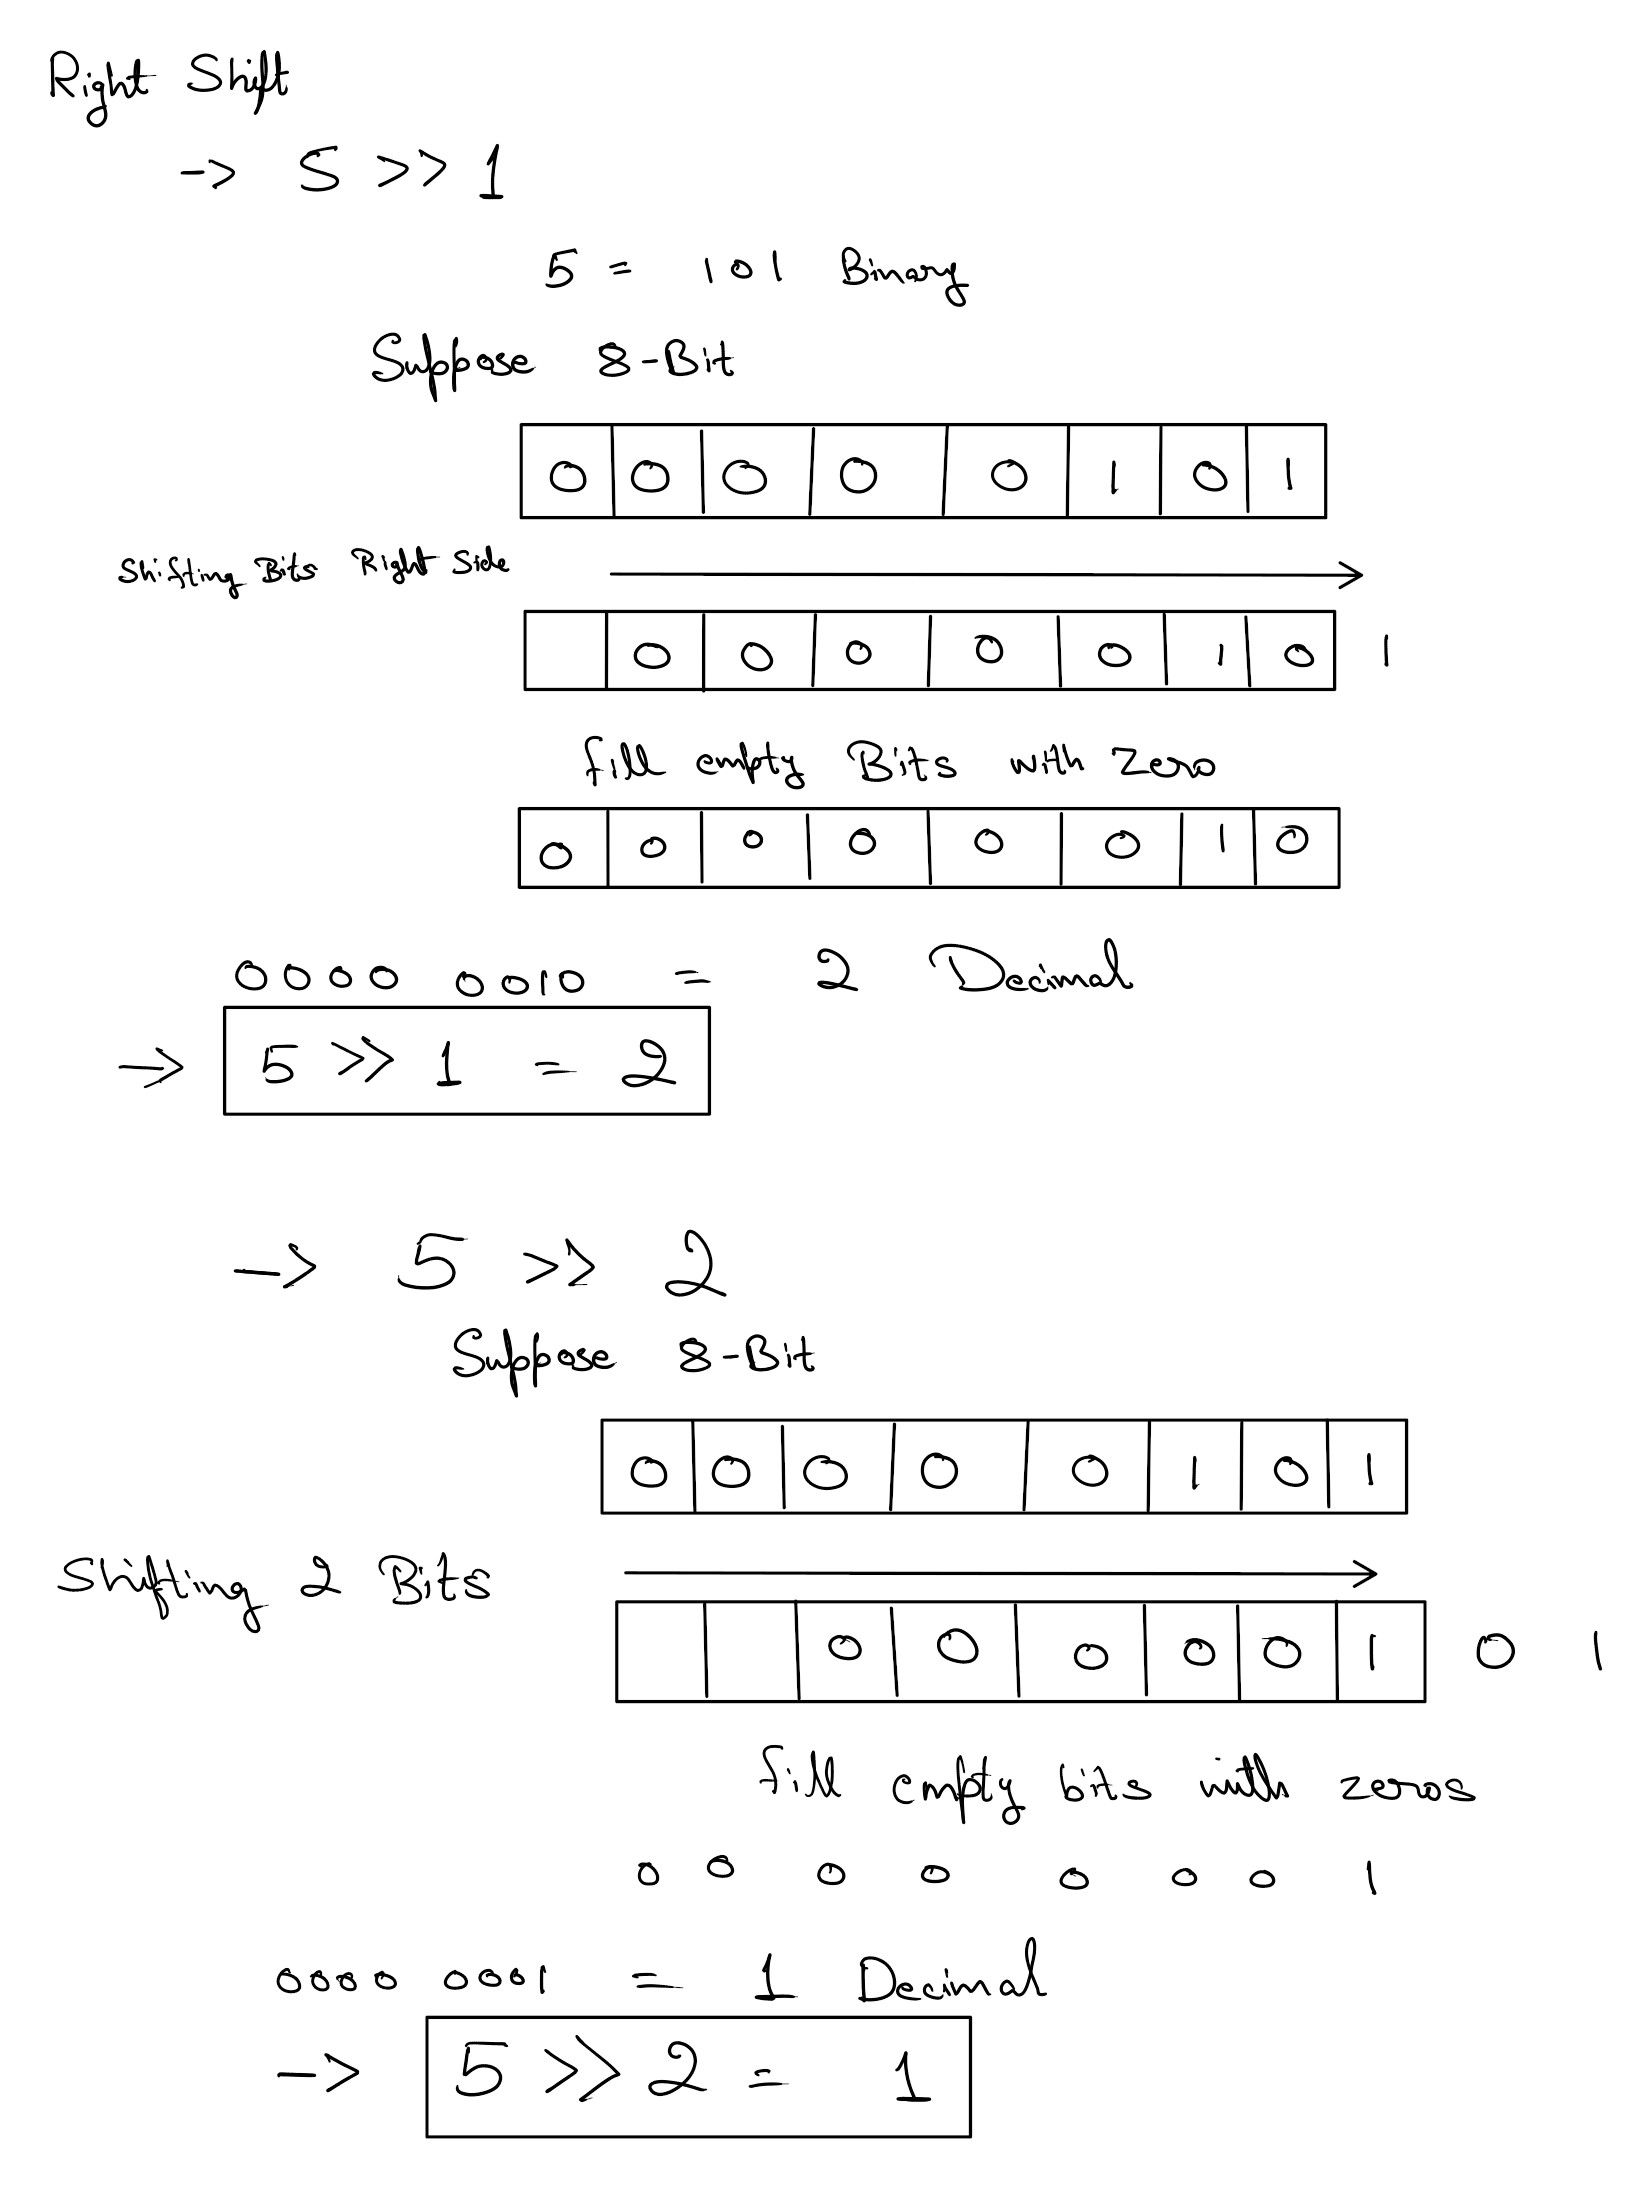 Right Shift
-> 5 >> 1
5 = 101 Binary
Suppose 8-Bit
0 0 0 0 0 1 0 1
Shifting Bits Right Side
0 0 0 0 0 1 0 1
fill empty Bits with zero
0 0 0 0 0 0 1 0
0000 0010 = 2 Decimal
-> 5 >> 1 = 2
-> 5 >> 2
Suppose 8-Bit
0 0 0 0 0 1 0 1
Shifting 2 Bits
0 0 0 0 0 1 0 1
fill empty bits with zeros
0 0 0 0 0 0 0 1
0000 0001 = 1 Decimal
-> 5 >> 2 = 1